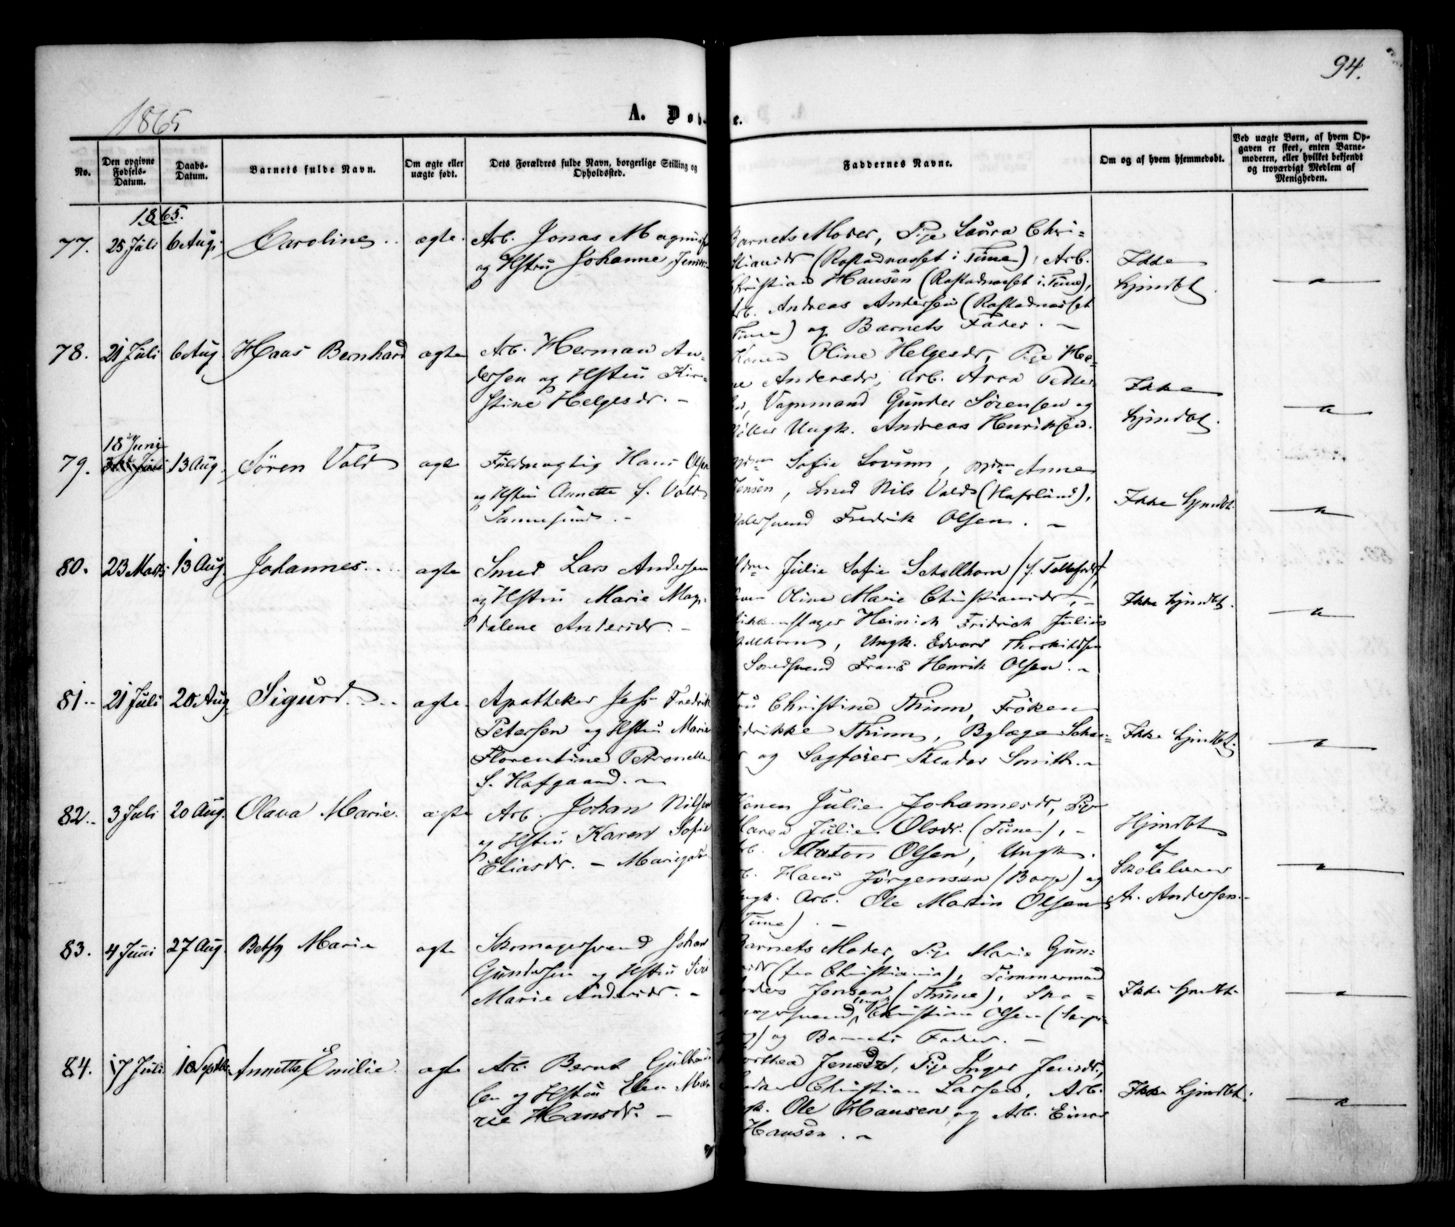 94.
1865
A. Døb
e.
No.
Den opgivne Fødsels-Datum.
Daabs-Datum.
Barnets fulde Navn.
Om ægte eller uægte født.
Dets Forældres fulde Navn, borgerlige Stilling og Opholdssted.
Faddernes Navne.
Om og af hvem hjemmedøbt.
Ved uægte Børn, af hvem Opgaven er skeet, enten Barnemoderen, eller hvilket bekjendt og troværdigt Medlem af Menigheden.
1865.
77. 25 Juli 6 Aug. Caroline ægte.
Arb. Jonas Magnus
og Hstru Johanne Jens
Barnets Moder, Pige Laura Chri-
stiansdr (Rostadnæsset i Tune), Arb.
Christian Hansen (Rostadnæsset i Tune),
Arb. Andreas Andersen (Rostadnæsset
Tune) og Barnets Fader. -
Ikke
hjmdbt.
78. 21 Juli 6 Aug Haas Bernhard ægte
Arb. Herman An-
dersen og Hstru Kir-
stine Helgesdr. -
Kone Oline Helgesdr, Pige He-
ne Andersdr, Arb.
Gunder Sørensen og
Ungk. Andreas Henriksen.
Ikke
hjmdbt.
79. 18 Juni 13 Aug. Søren Vold ægte
Fuldmægtig Hans Olsen
og Hstru Annette f. Vold
Sannesund. -
Sofie Lovum, Anne
Jensen, Smed Nils Vold (Hafslund),
Fredrik Olsen. -
Ikke hjmdbt.
80. 23 Marts 13 Aug Johannes ægte
Smed Lars Andersen
og Hstru Marie Mag-
dalene Andersdr. -
Julie Sofie Schollhorn (f. Tollefsdr),
Oline Marie Christiansdr, -
Heinrick Fridrick Julius
Ungk. Edvard Thorkildsen
Smedsvend Frans Henrik Olsen. -
Ikke hjmdbt.
81. 21 Juli 20 Aug. Sigurd ægte.
Apotheker Jess Fredrik
Petersen og Hstru Marie
Florentine Petronelle
f. Hofgaard. -
Fru Christine Thinn, Frøken
Fredrikke Thinn, Bylæge
og Sagfører Theodor Smith. -
Ikke hjmdbt.
82. 3 Juli 20 Aug. Olava Marie. ægte
Arb. Johan Nilsen
og Hstru Karen Sofie
Eliasdr. -
Konen Julie Johannesdr, Pige
Maren Julie Olsdr. (Tune), -
Arb. Anton Olsen, Ungk.
Arb. Hans Jørgensen (Borge) og
Ungk. Arb. Ole Martin Olsen
(Tune). -
Hjmdbt
af
Skolelærer
A. Andersen.
83. 4 Juni 27 Aug Betsy Marie ægte
Skomagersvend Johan
Gundersen og Hstru
Marie Andersdr. -
Barnets Moder, Pige Marie Gun-
(fra Christiania), Tømmermand
Anders Jensen (Tune), Sko-
magersvend, Ungk. Christian Olsen (Sarps-
borg) og Barnets Fader. -
Ikke hjmdbt.
84. 17 Juli 10 Septbr Annette Emilie ægte
Arb. Bernt Gulbrand
sen og Hstru Elen Ma-
rie Hansdr. -
Dorthea Jensdr, Pige Inger Jensdr,
Christian Larsen, Arb.
Ungk. Ole Hansen, og Arb. Einar
Hansen. -
Ikke hjmdbt.